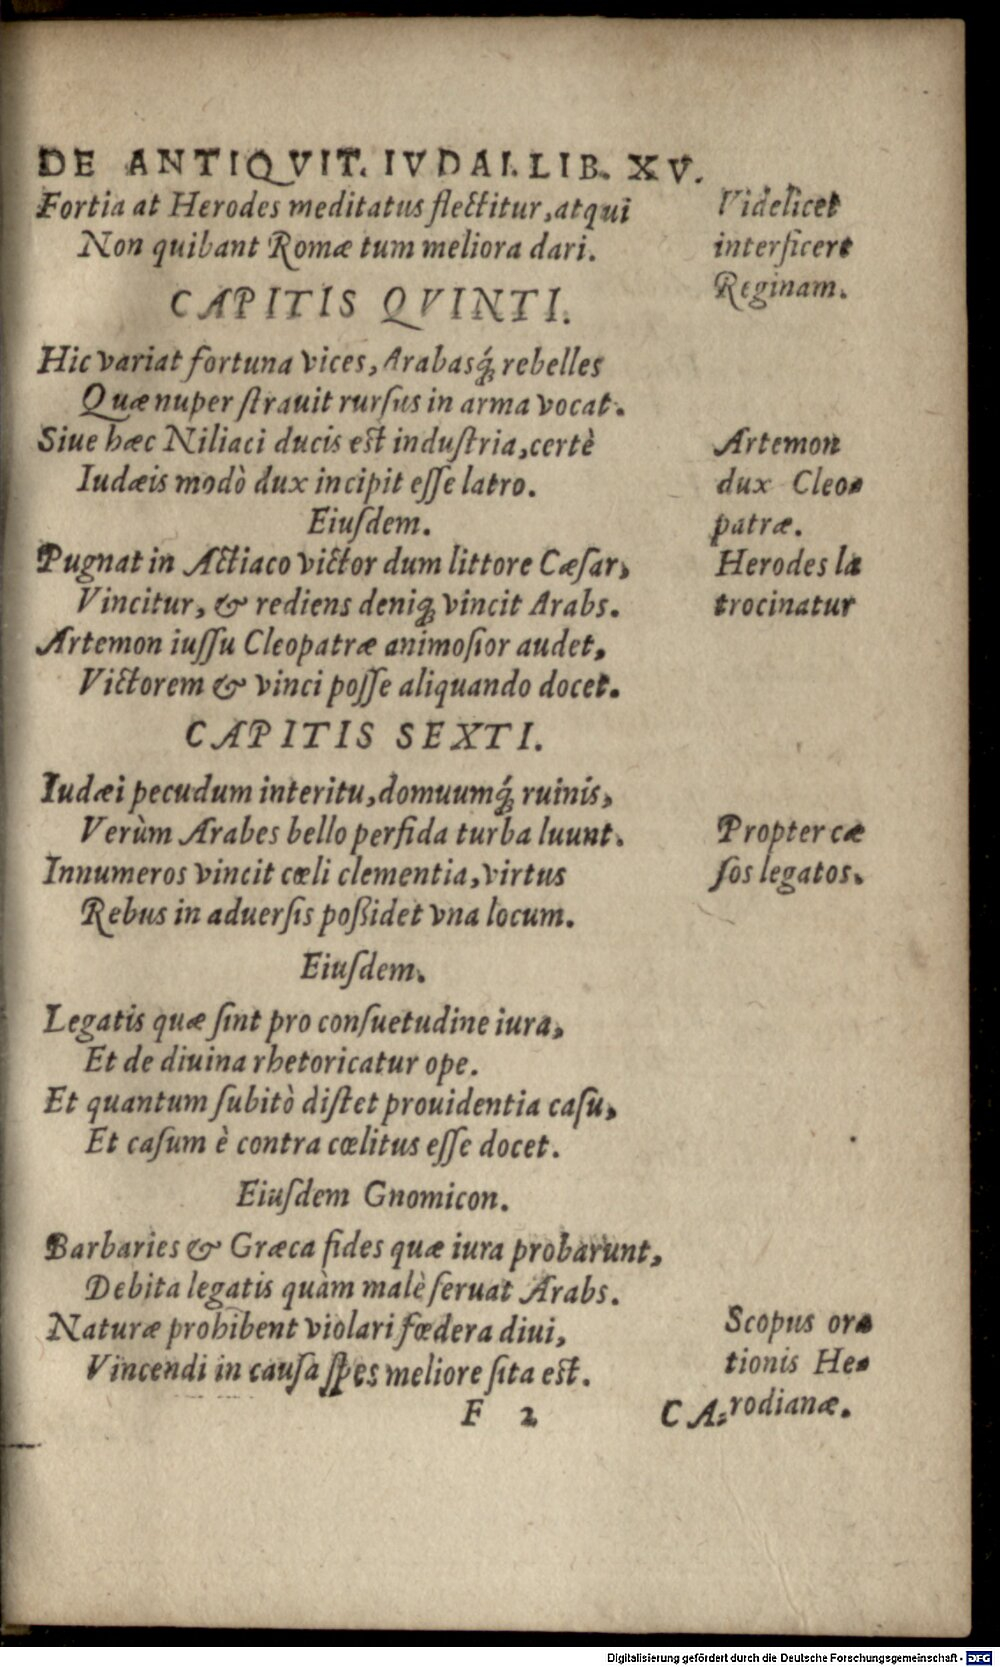 DE ANTIQVIT. IVDAI. LIB. XV.
Fortia at Herodes meditatus flectitur, atqui
Non quibant Romæ tum meliora dari.
Videlicet
interficere
Reginam.
CAPITIS QVINTI.
Hic variat fortuna vices, Arabasq́; rebelles
Quæ nuper ſtrauit rurſus in arma vocat.
Siue hæc Niliaci ducis eſt induſtria, certè
Iudæis modò dux incipit eſſe latro.
Artemon
dux Cleo-
patræ.
Eiuſdem.
Pugnat in Actiaco victor dum littore Cæſar,
Vincitur, & rediens deniq; vincit Arabs.
Artemon iuſſu Cleopatræ animoſior audet,
Victorem & vinci poſſe aliquando docet.
Herodes la
trocinatur
CAPITIS SEXTI.
Iudæi pecudum interitu, domuumq́; ruinis,
Verùm Arabes bello perfida turba luunt.
Innumeros vincit cœli clementia, virtus
Rebus in aduerſis poßidet vna locum.
Propter cæ
ſos legatos.
Eiuſdem.
Legatis quæ ſint pro conſuetudine iura,
Et de diuina rhetoricatur ope.
Et quantum ſubitò diſtet prouidentia caſu,
Et caſum è contra cœlitus eſſe docet.
Eiuſdem Gnomicon.
Barbaries & Græca fides quæ iura probarunt,
Debita legatis quàm malè ſeruat Arabs.
Naturæ prohibent violari fœdera diui,
Vincendi in cauſa ſpes meliore ſita eſt.
Scopus ora
tionis He-
rodianæ.
F 2
CA-
Digitalisierung gefördert durch die Deutsche Forschungsgemeinschaft - DFG